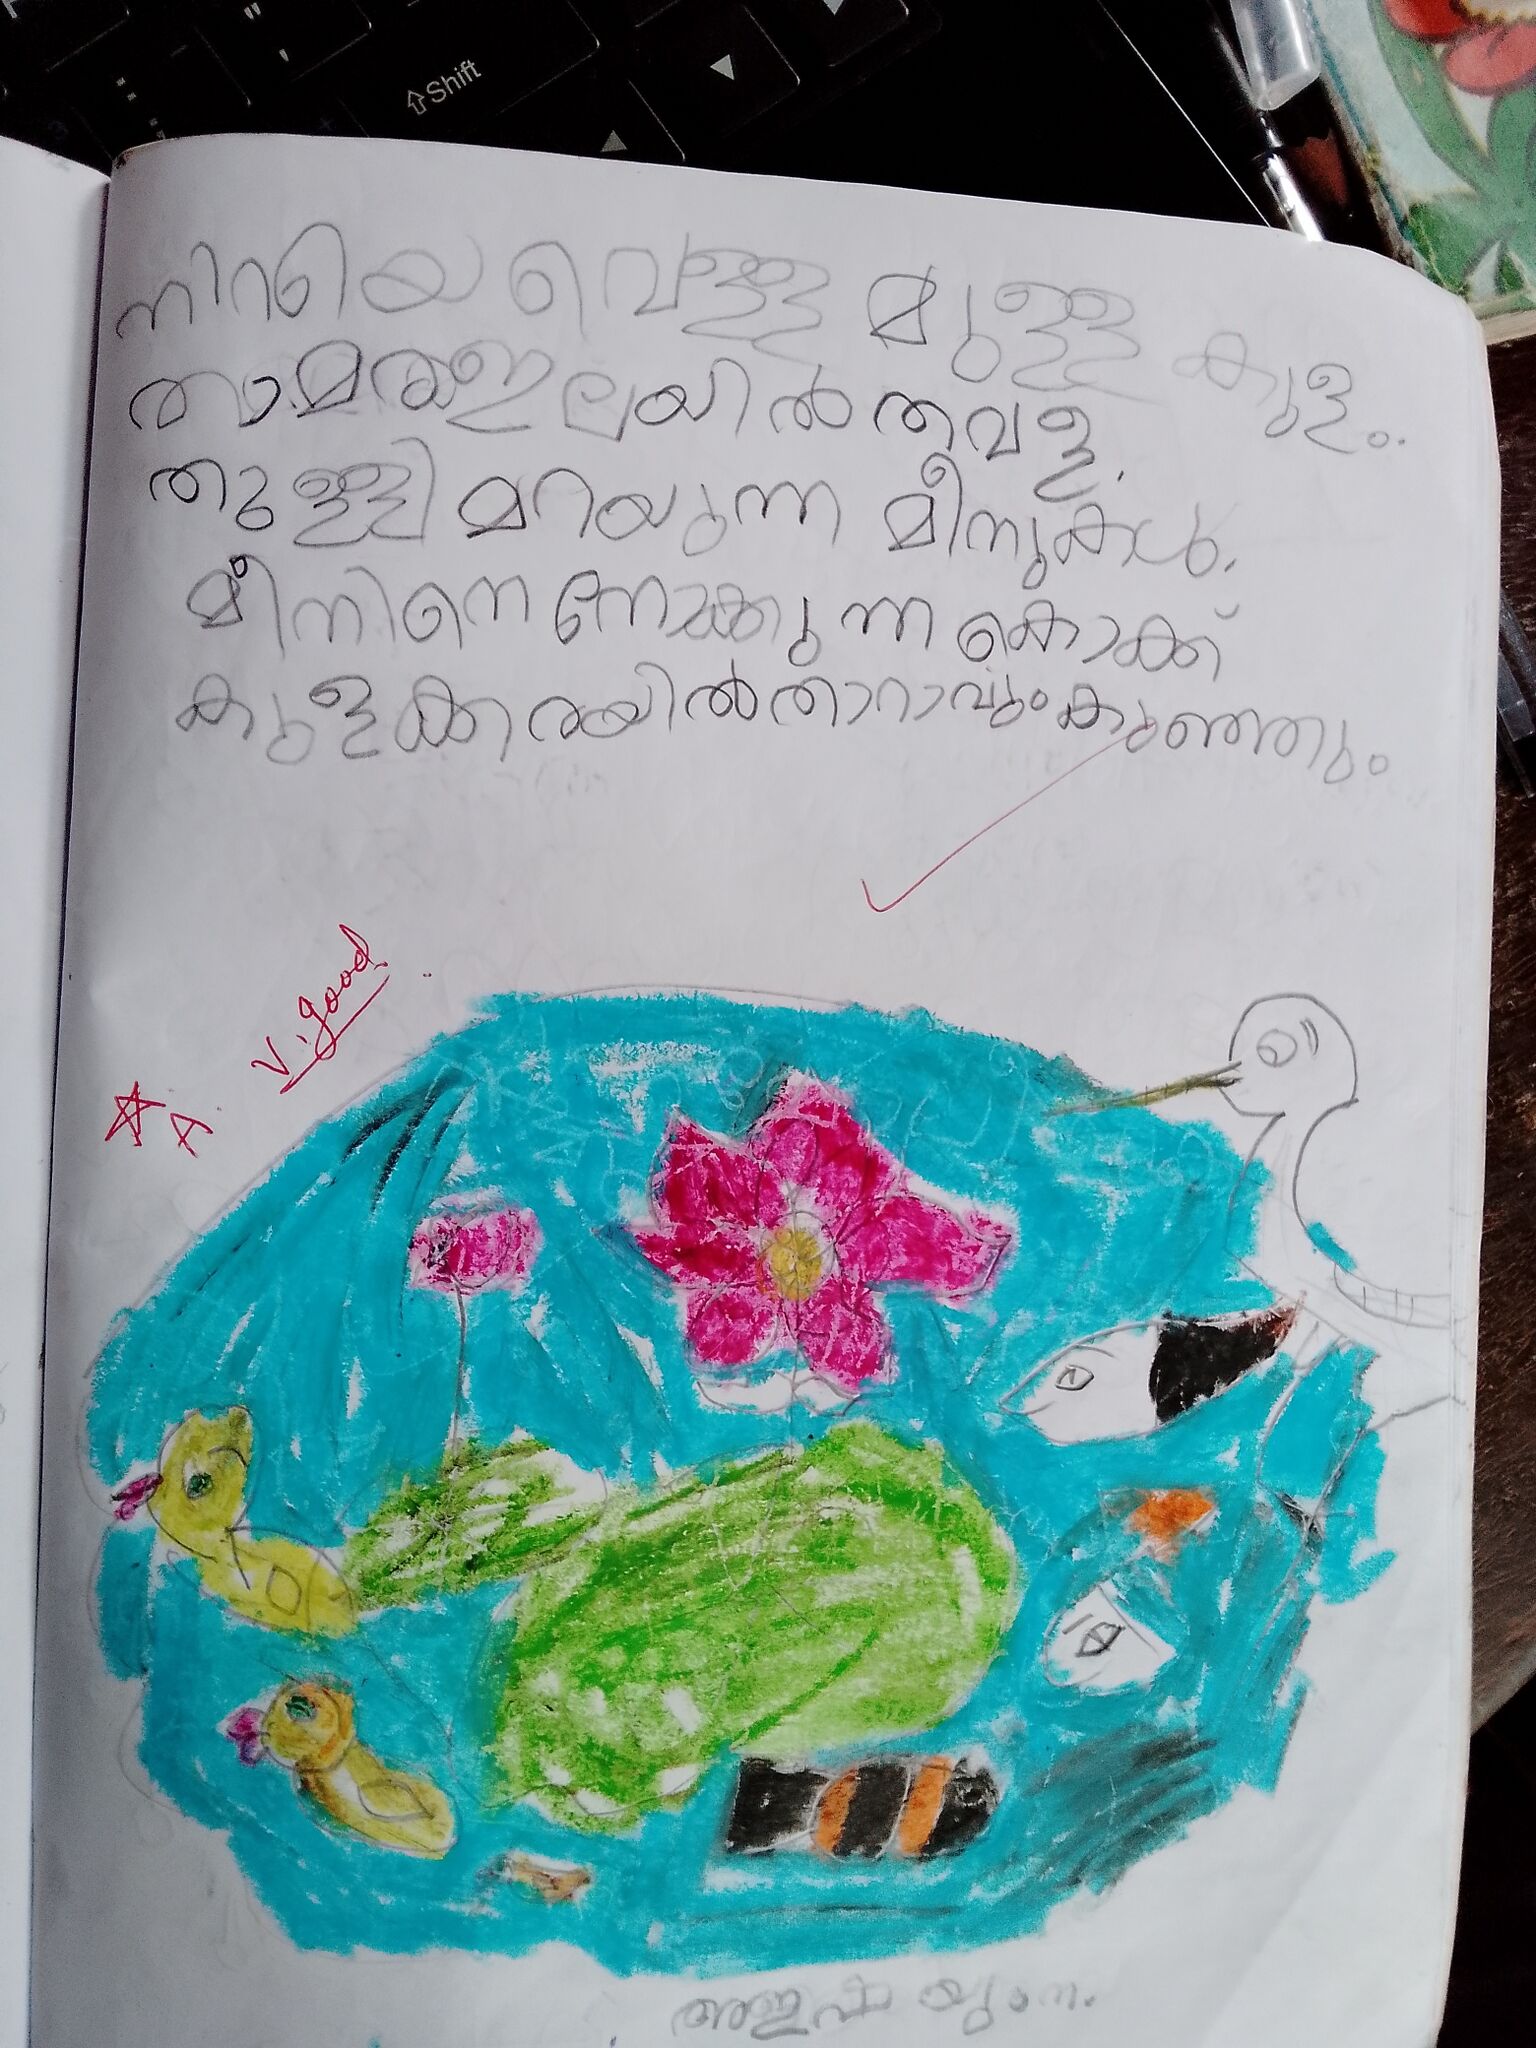 Shift
നിറയെ വെള്ള മുള്ള കുളം.
താമരഇലയിൽ തവള.
തുള്ളി മറിയുന്ന മീനുകൾ.
മീനിനെ നോക്കുന്ന കൊക്ക്
കുളക്കരയിൽ താറാവും കുഞ്ഞും
V. good
A